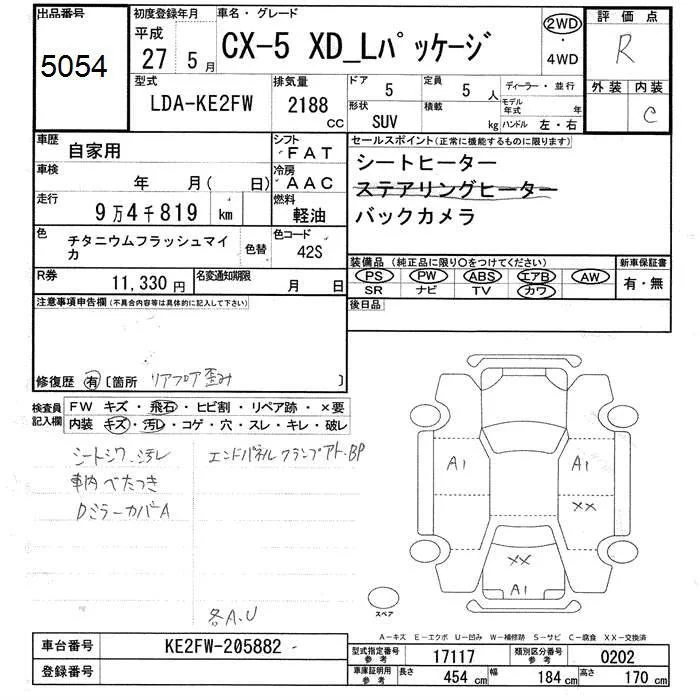 出品番号
5054
初度登録年月
平成
27 5 月
車名・グレード
CX-5 XD_Lパッケージ
2WD
・
4WD
評価点
R
外装 内装
C
型式
LDA-KE2FW
排気量
2188
CC
ドア
5
定員
5 人
形状
SUV
積載
kg
ディーラー・並行
モデル年式
年
ハンドル 左・右
車歴
自家用
シフト
FAT
車検
年 月( 日)
冷房
AAC
走行
9万4千819 km
燃料
軽油
色
チタニウムフラッシュマイカ
色替
色コード
42S
R券
11,330 円
名変通知期限
月 日
セールスポイント(正常に機能するものに限ります)
シートヒーター
ステアリングヒーター
バックカメラ
装備品(純正品に限り〇をつけてください)
PS PW ABS エアB AW
SR ナビ TV カワ
新車保証書
有・無
後日品
注意事項申告欄(不具合内容等は具体的に記入して下さい)
修復歴 有 〔箇所 リアフロア歪み 〕
検査員記入欄
FW キズ・飛石・ヒビ割・リペア跡・×要
内装 キズ・汚レ・コゲ・穴・スレ・キレ・破レ
シートシワ 汚レ
車内 べたつき
Dミラーカバー A
エンドパネル クランプアト・BP
各A.U
A1
A1
XX
XX
A1
スペア
A-キズ E-エクボ U-凹み W-補修跡 S-サビ C-腐食 XX-交換済
車台番号
KE2FW-205882
登録番号
型式指定番号
参考
17117
類別区分番号
参考
0202
車庫証明用
参考
長さ
454 cm
幅
184 cm
高さ
170 cm